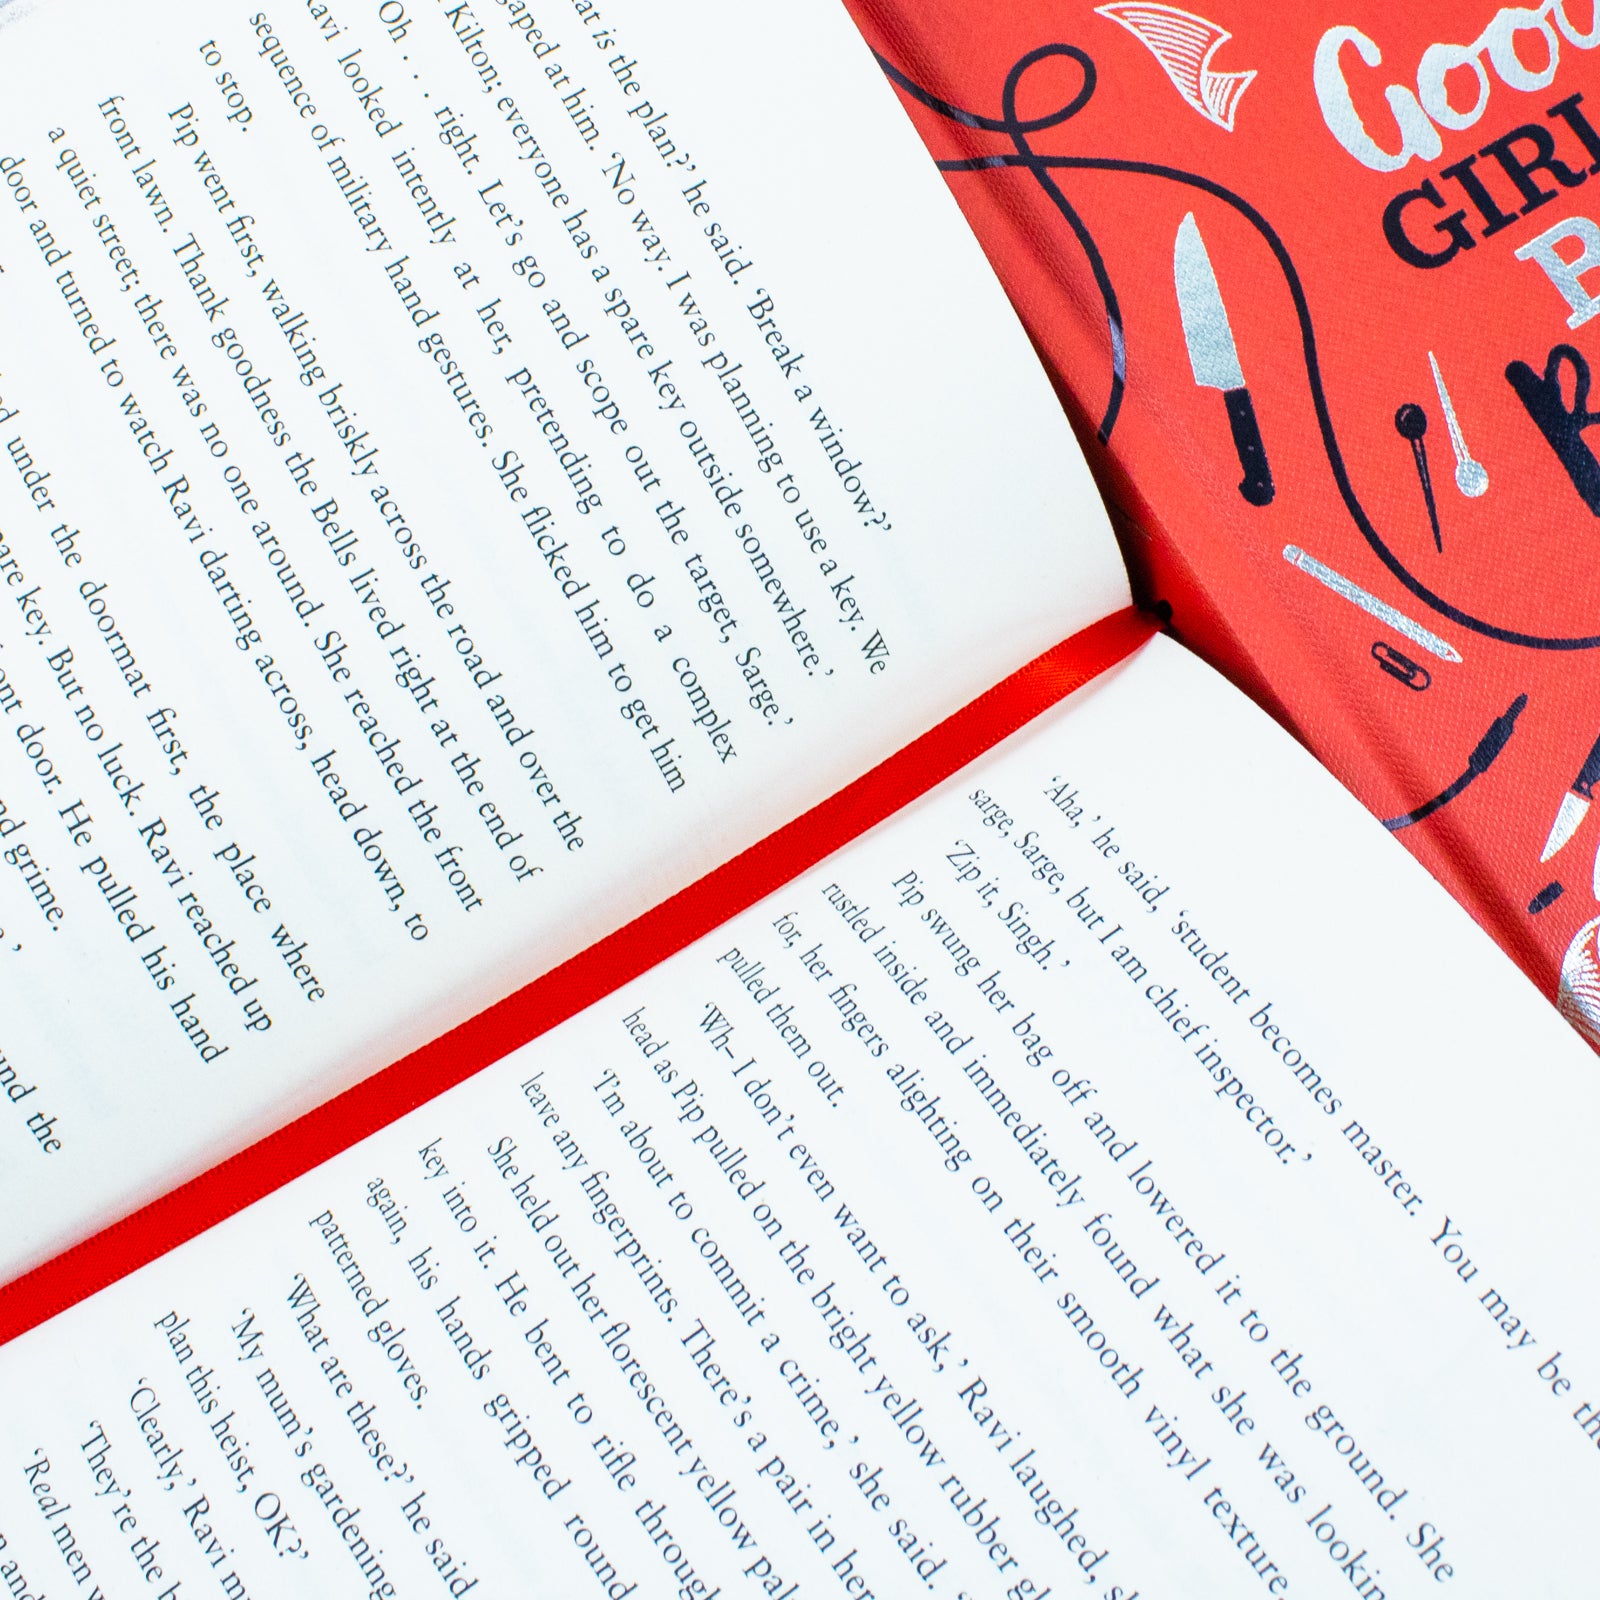 is the plan?’ he said. ‘Break a window?’
at him. ‘No way. I was planning to use a key. We
Kilton; everyone has a spare key outside somewhere.’
Oh . . . right. Let’s go and scope out the target, Sarge.’
looked intently at her, pretending to do a complex
sequence of military hand gestures. She flicked him to get him
to stop.
Pip went first, walking briskly across the road and over the
front lawn. Thank goodness the Bells lived right at the end of
a quiet street; there was no one around. She reached the front
door and turned to watch Ravi darting across, head down, to
under the doormat first, the place where
key. But no luck. Ravi reached up
door. He pulled his hand
grime.
the
‘Aha,’ he said, ‘student becomes master. You may be
sarge, Sarge, but I am chief inspector.’
‘Zip it, Singh.’
Pip swung her bag off and lowered it to the ground. She
rustled inside and immediately found what she was
for, her fingers alighting on their smooth vinyl texture.
pulled them out.
‘Wh– I don’t even want to ask,’ Ravi laughed,
head as Pip pulled on the bright yellow rubber
‘I’m about to commit a crime,’ she said.
leave any fingerprints. There’s a pair in her
She held out her florescent yellow
key into it. He bent to rifle through
again, his hands gripped round
patterned gloves.
‘What are these?’ he said
‘My mum’s gardening
plan this heist, OK?’
‘Clearly,’ Ravi
‘They’re the
‘Real men
GIRL